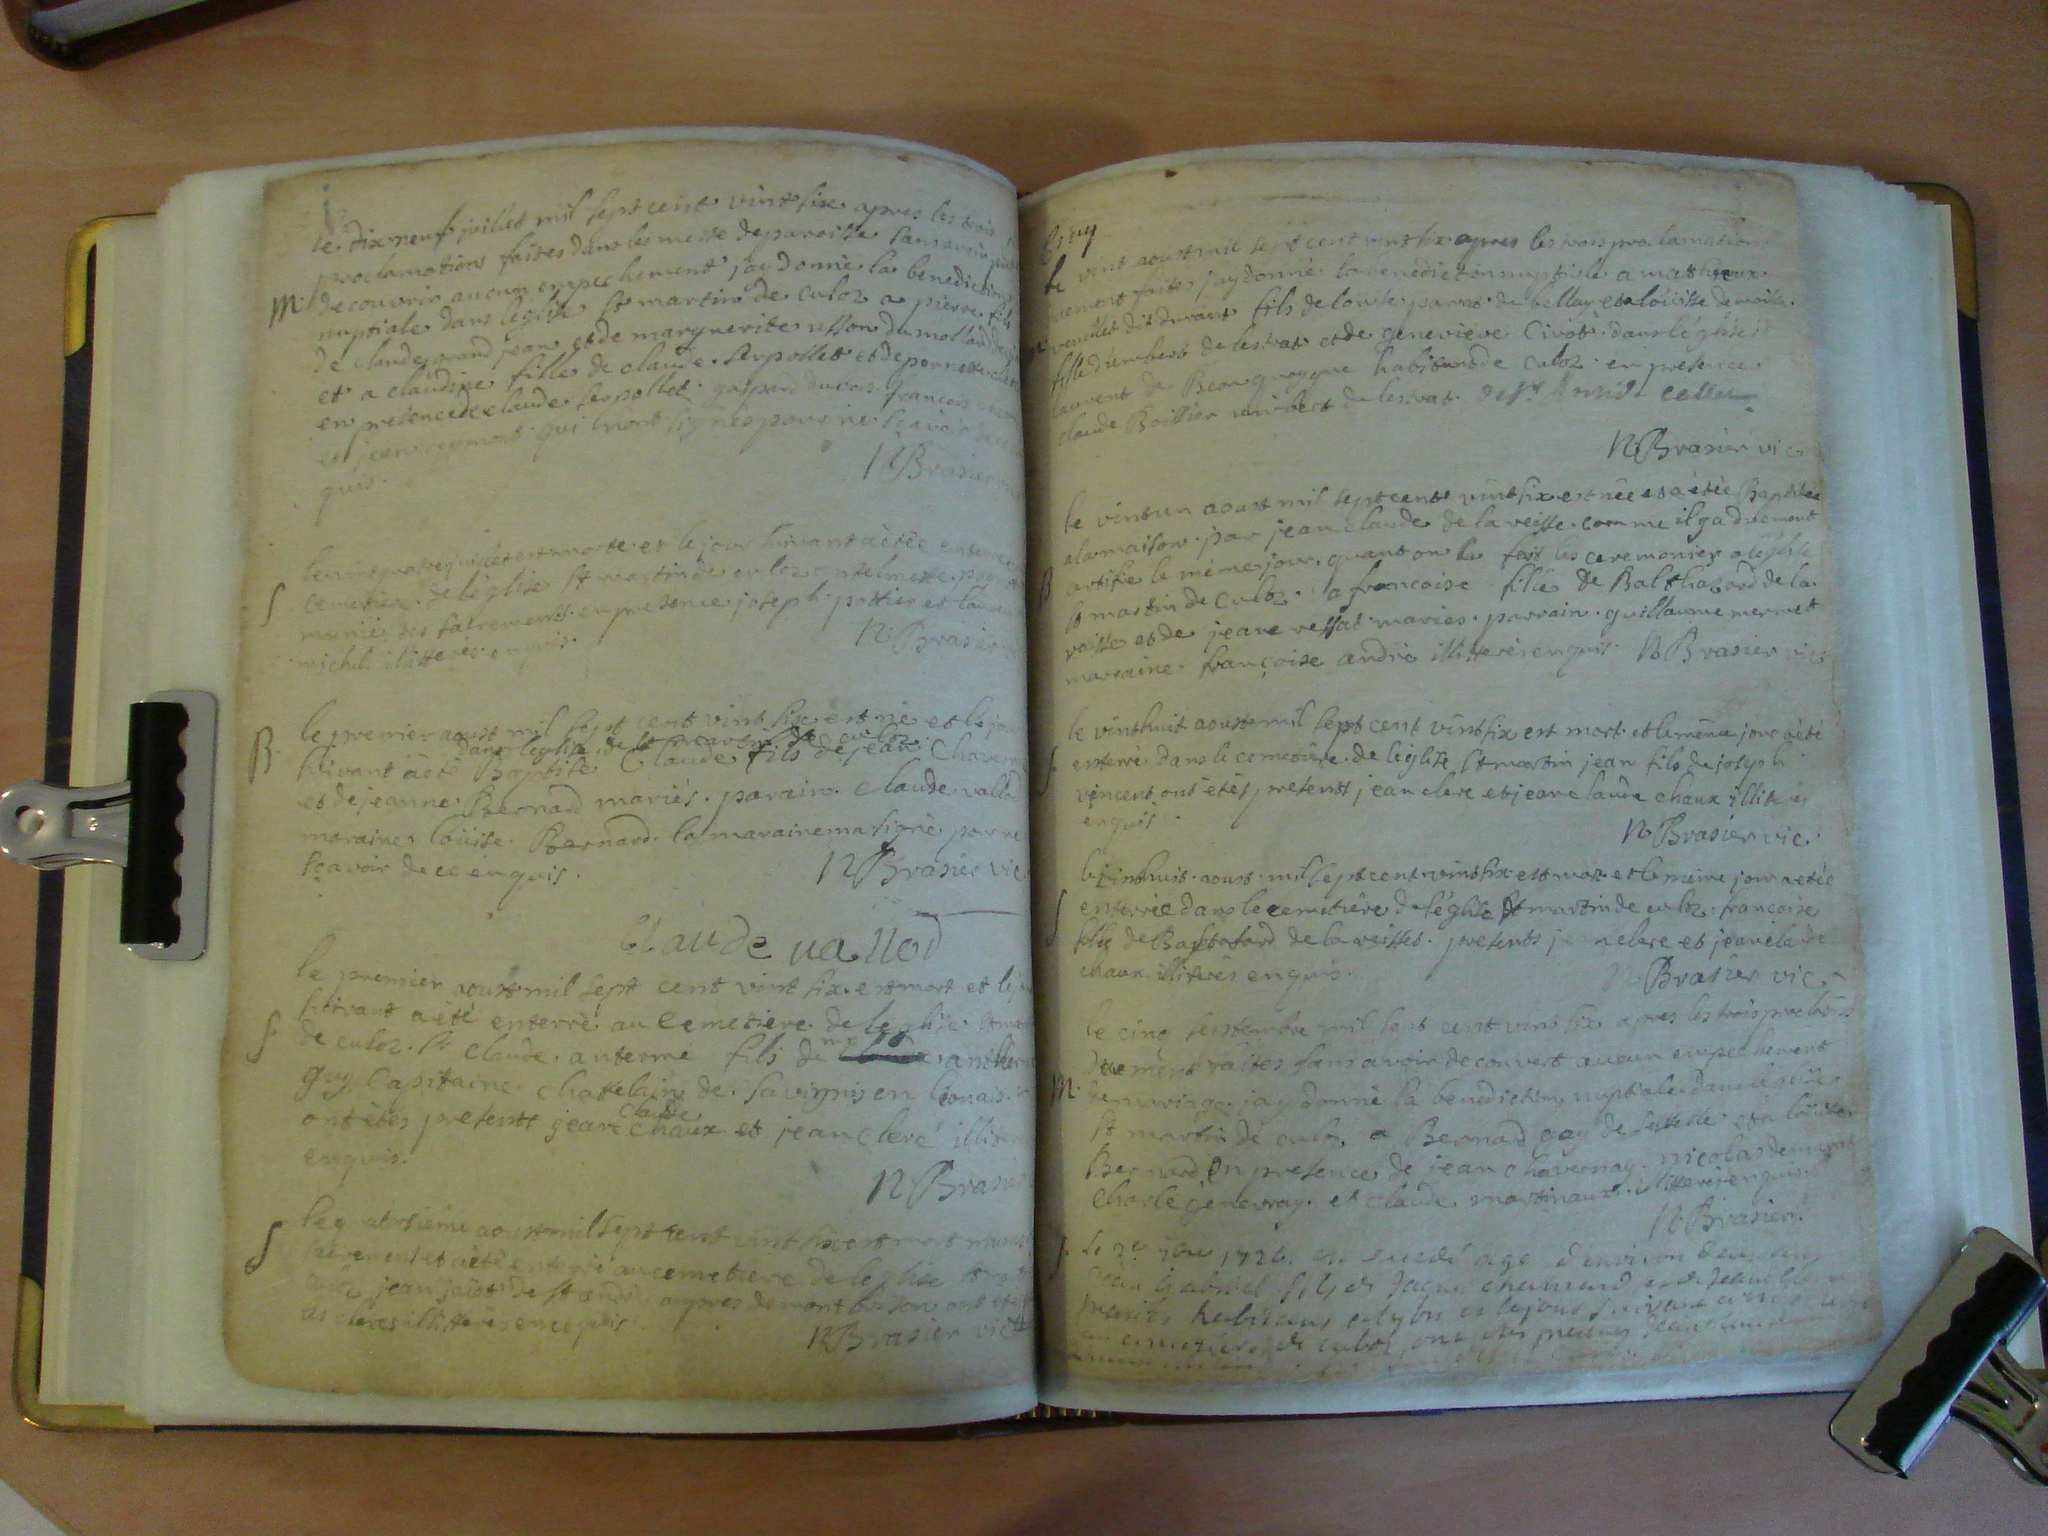 le dix neuf juillet mil sept cent vint six apres les trois
proclamations faites dans les messe de paroisse sans avoir pu
M. decouvrir aucun empechement j'ay donné la benediction
nuptiale dans l'église St martin de culoz a pierre fils
de claude grand jean et de marguerite usson du mollard
et a claudine fille de claude serpollet et de pernette
en presence de claude serpollet gaspard françois
et jean reymont qui n'ont signés pour ne sçavoir de ce
quis.
N Brasier
le vint quatre juillet est morte et le jour suivant a étée enterrée
S cemetiere de l'église St martin de culoz
munie des sacrements en presence joseph pottier et
michel illitterés enquis.
N. Brasier
le premier aoust mil sept cent vint six est né et le jour
dans l'église de St martin de culoz
B. suivant a été Baptisé Claude fils de jean
et de jeanne Bernard mariés. parain. Claude vallod
maraine loüise Bernard. la maraine n'a signé pour ne
sçavoir de ce enquis.
N Brasier vic
Claude vallod
le premier aoust mil sept cent vint six est mort et le jour
suivant a été enterré au Cemetiere de l'eglise St martin
S de culoz. Sr Claude antermé fils de mre
Guy Capitaine chatelain de Savignis en lionais
claude
ont étés presents jean chaux et jean clerc illiterés
enquis.
N Brasier
S le quatrieme aoust mil sept cent vint six est mort muni
sacrement et a été enterré au cemetiere de l'eglise St
jean de St andré aupres de mont ont été
clercs illitterés enquis.
N Brasier vic
le vint aoust mil sept cent vint six apres les trois proclamations
faites j'ay donné la benediction nuptiale a mathieux
dit durant fils de louise parra de bellay et a loüisse
fille d'umbert de lestrat et de genevieve Civot dans l'église
laurent de Beon quoyque habitant de culoz en presence
claude Boittier umbert de lestrat
N. Brasier vic
le vint un aoust mil sept cent vint six est née et a étée Baptisée
a la maison par jean claude de la veisse comme il y a duement
B artifie le même jour quant on lu fait les ceremonies a l'église
St martin de culoz a francoise fille de Balthazard de la
veisse et de jeane ressat mariés. parrain. guillaume mermet
marraine. françoise andré illitterés enquis. N. Brasier vic
le vint huit aoust mil sept cent vint six est mort et le même jour a été
S enterré dans le cemetiere de l'église St martin jean fils de joseph
vincent ont étés presents jean clerc et jean claude chaux illiterés
enquis.
N Brasier vic.
le vint huit aoust mil sept cent vint six est mort et le même jour a étée
S enterrée dans le cemetiere de l'église St martin de culoz francoise
fille de Baltazard de la veisse. presents jean clerc et jean claude
chaux illiterés enquis.
N. Brasier vic
le cinq septembre mil sept cent vint six apres les trois proclaôns
duement faites sans avoir decouvert aucun empechement
M. de mariage j'ay donné la benediction nuptiale dans l'église
St martin de culoz a Bernard gay de et a loüise
Bernard en presence de jean chavernay. nicolas
Charle genevray et claude martinaux. illitterés enquis
N Brasier.
S. le 7bre 1726 est decedé agé d'environ
gabriel fils de jaque
mariés habitans et le jour suivant
au cimetiere de culoz ont étés presens